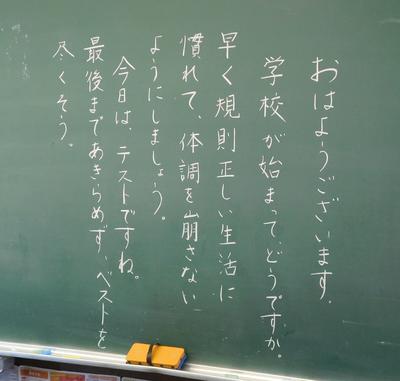 おはようございます。
学校が始まって、どうですか。
早く規則正しい生活に
慣れて、体調を崩さない
ようにしましょう。
今日は、テストですね。
最後まであきらめず、ベストを
尽くそう。